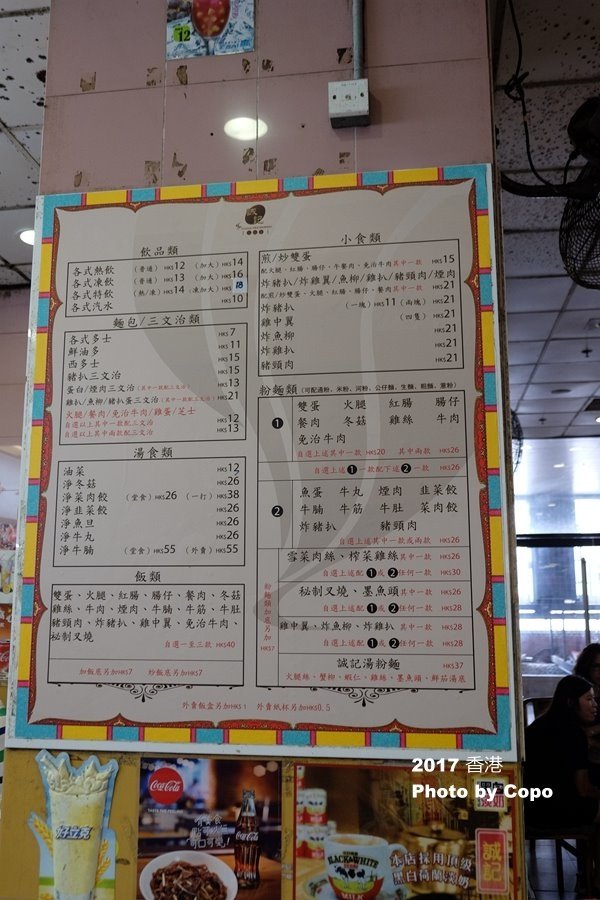 12
飲品類
各式熱飲 (普通) HK$12 (加大) HK$14
各式凍飲 (普通) HK$13 (加大) HK$16
各式特飲 (熱/凍) HK$14 凍加大 HK$
各式汽水 HK$10
麵包/三文治類
各式多士 HK$7
鮮油多 HK$11
西多士 HK$15
豬扒三文治 HK$15
蛋白/煙肉三文治 (其中一款配三文治) HK$13
雞扒/魚柳/豬扒蛋三文治 (其中一款配三文治) HK$21
火腿/餐肉/免治牛肉/雞蛋/芝士
自選以上其中一款配三文治 HK$12
自選以上其中兩款配三文治 HK$13
湯食類
油菜 HK$12
淨冬菇 HK$26
淨菜肉餃 (堂食) HK$26 (一打) HK$38
淨韭菜餃 HK$26
淨魚旦 HK$26
淨牛丸 HK$26
淨牛腩 (堂食) HK$55 (外賣) HK$55
飯類
雙蛋、火腿、紅腸、腸仔、餐肉、冬菇
雞絲、牛肉、煙肉、牛腩、牛筋、牛肚
豬頸肉、炸豬扒、雞中翼、免治牛肉、
秘制叉燒
自選一至三款 HK$40
加飯底另加HK$7 炒飯底另加HK$7
小食類
煎/炒雙蛋
配火腿、紅腸、腸仔、午餐肉、免治牛肉其中一款 HK$15
炸豬扒/炸雞翼/魚柳/雞扒/豬頸肉/煙肉
配煎/炒雙蛋、火腿、紅腸、腸仔、餐肉其中一款 HK$21
炸豬扒 (一塊) HK$11 (兩塊) HK$21
雞中翼 (四隻) HK$21
炸魚柳 HK$21
炸雞扒 HK$21
豬頸肉 HK$21
粉麵類 (可配通粉、米粉、河粉、公仔麵、生麵、粗麵、意粉)
1 雙蛋 火腿 紅腸 腸仔
餐肉 冬菇 雞絲 牛肉
免治牛肉
自選上述其中一款HK$20 其中兩款 HK$26
自選上述1一款配下述2一款 HK$26
2 魚蛋 牛丸 煙肉 韭菜餃
牛腩 牛筋 牛肚 菜肉餃
炸豬扒 豬頸肉
自選上述其中一款或兩款 HK$26
雪菜肉絲、榨菜雞絲其中一款 HK$26
自選上述配1或2任何一款 HK$30
秘制叉燒、墨魚頭其中一款 HK$26
自選上述配1或2任何一款 HK$28
雞中翼、炸魚柳、炸雞扒其中一款 HK$28
自選上述配1或2任何一款 HK$28
誠記湯粉麵 HK$37
火腿絲、蟹柳、蝦仁、雞絲、墨魚頭、鮮茄湯底
粉麵類加底另加HK$7
外賣飯盒另加HK$1 外賣紙杯另加HK$0.5
2017 香港
Photo by Copo
好立克
Coca-Cola
TASTE THE FEELING
Coca-Cola
可口可樂!
BLACK&WHITE
MILK
本店採用頂級
黑白荷蘭淡奶
誠記